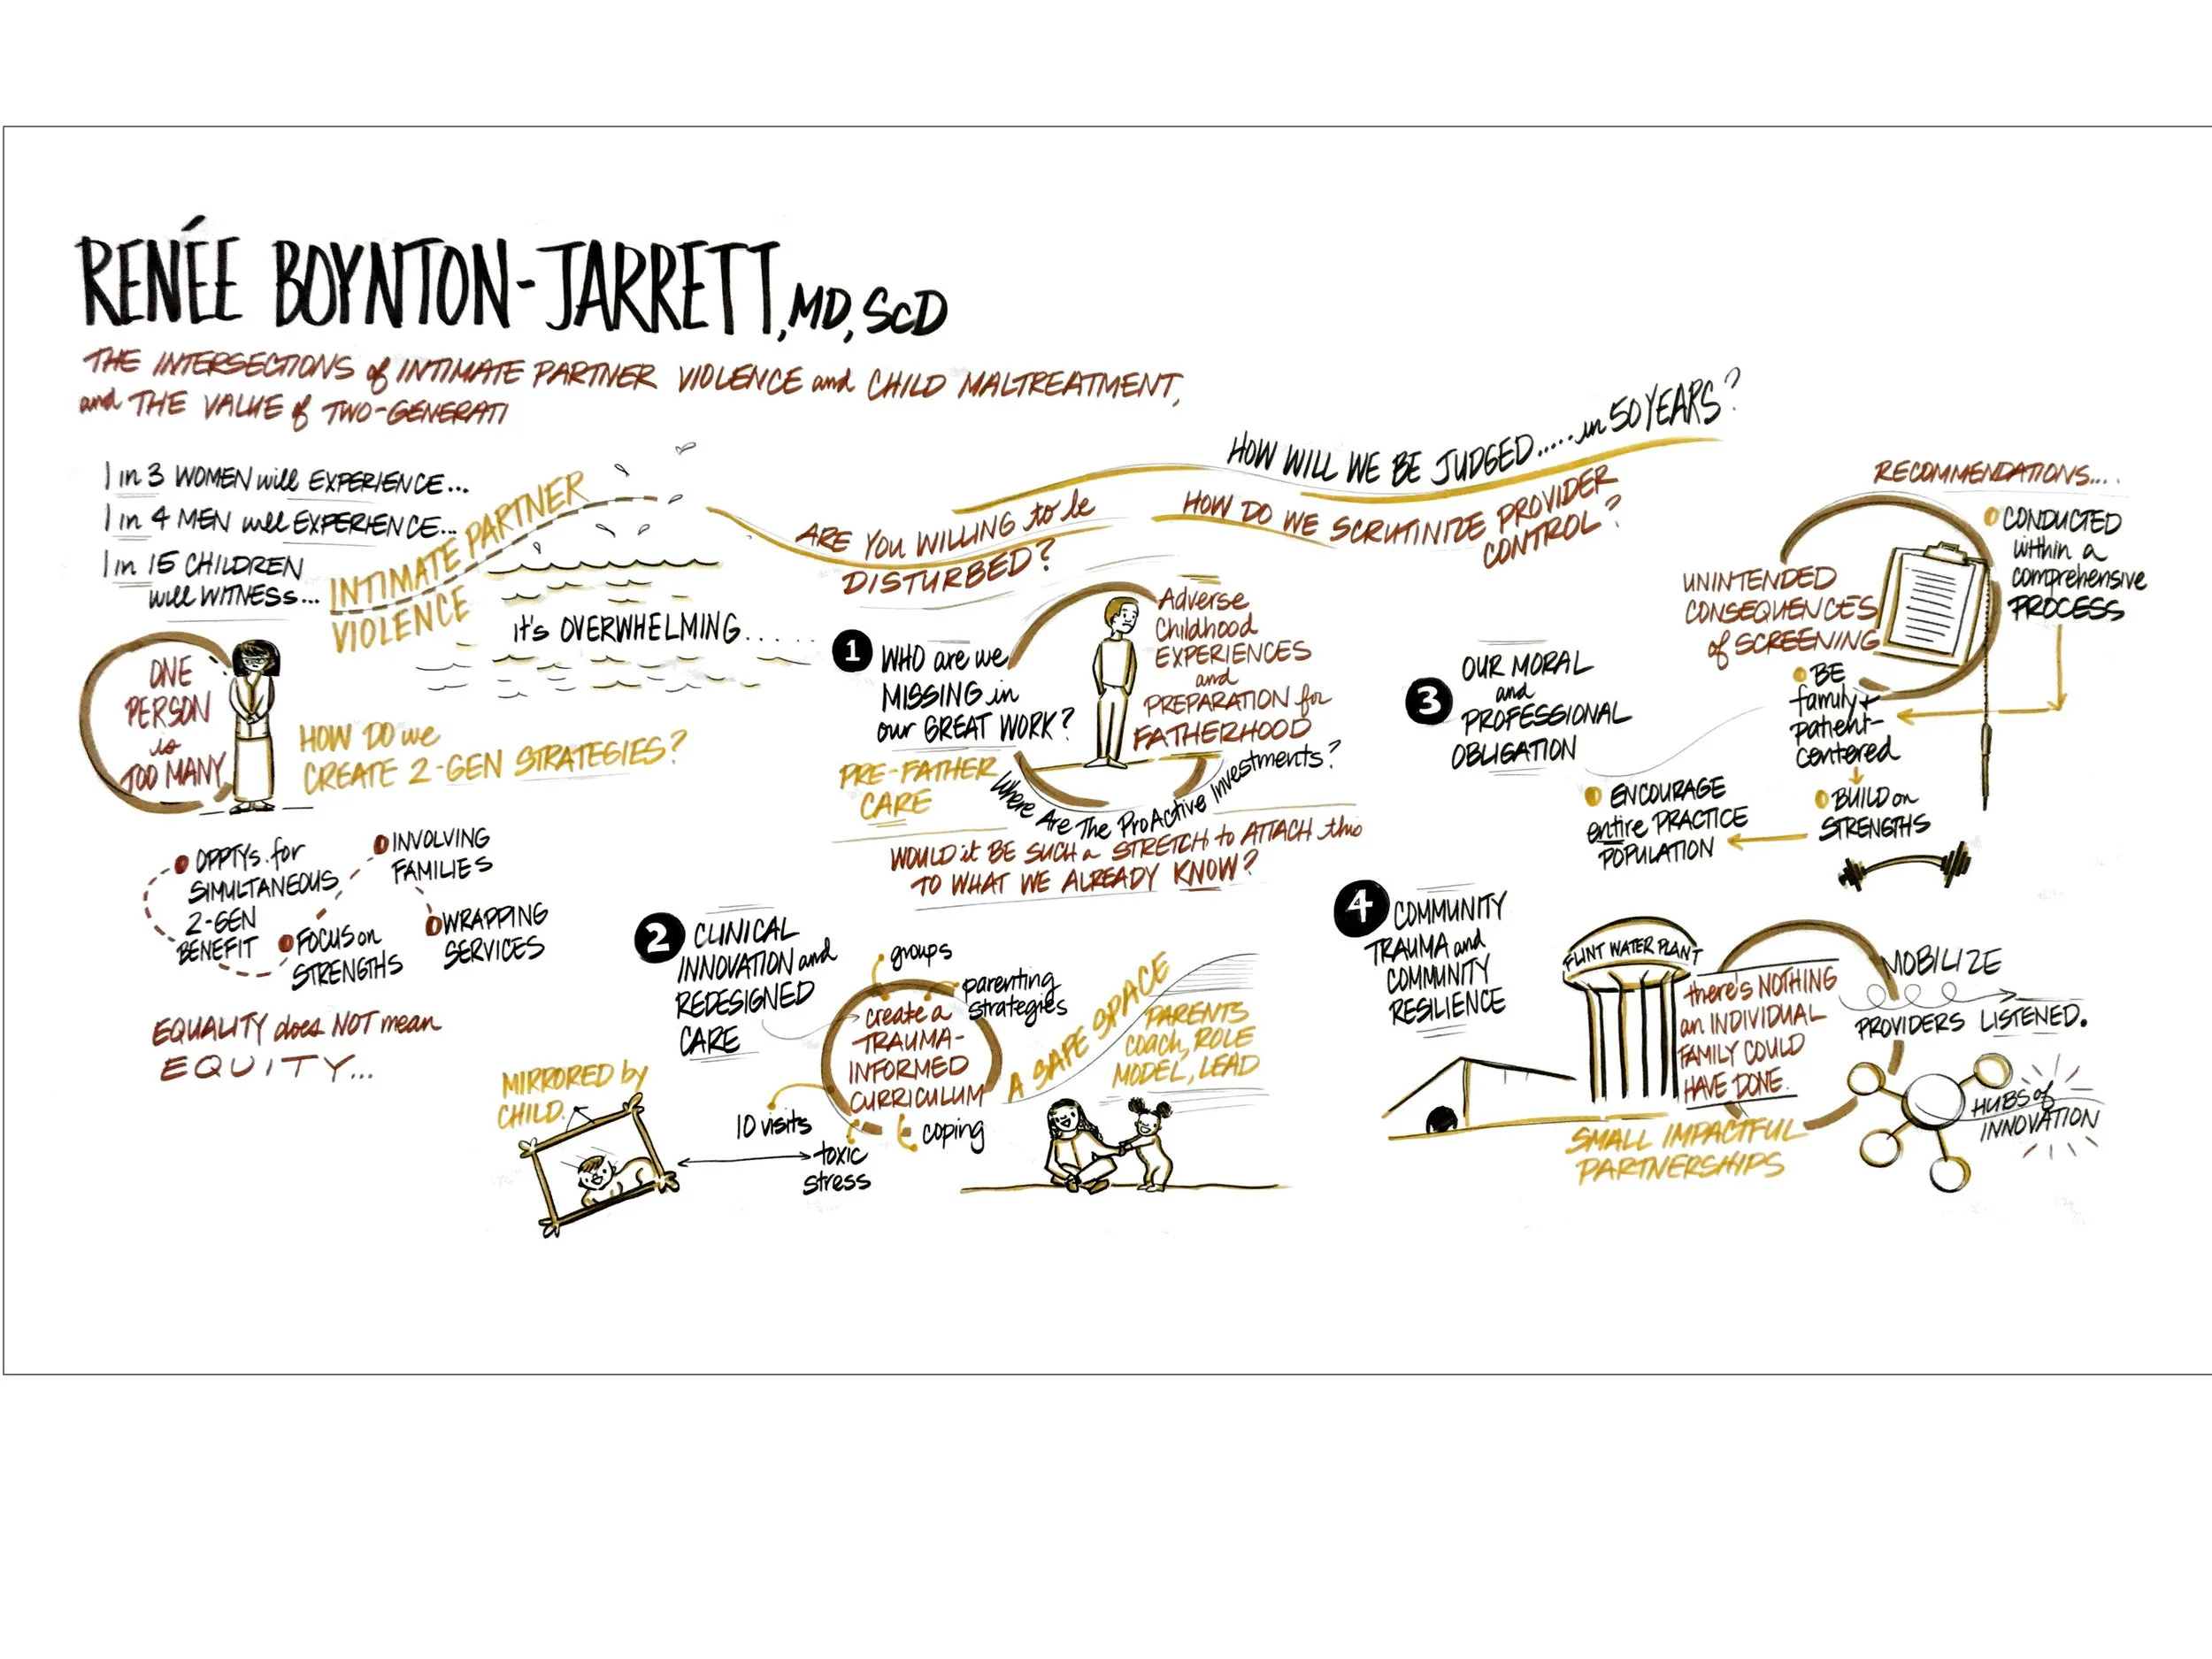 RENÉE BOYNTON-JARRETT, MD, ScD
THE INTERSECTIONS of INTIMATE PARTNER VIOLENCE and CHILD MALTREATMENT,
and THE VALUE of TWO-GENERATI
1 in 3 WOMEN will EXPERIENCE...
1 in 4 MEN will EXPERIENCE...
1 in 15 CHILDREN
will WITNESS...
INTIMATE PARTNER
VIOLENCE
it's OVERWHELMING......
ONE
PERSON
is
TOO MANY
HOW DO we
CREATE 2-GEN STRATEGIES?
OPPTYs. for
SIMULTANEOUS
2-GEN
BENEFIT
FOCUS on
STRENGTHS
INVOLVING
FAMILIES
WRAPPING
SERVICES
EQUALITY does NOT mean
EQUITY...
ARE YOU WILLING to be
DISTURBED?
HOW WILL WE BE JUDGED.....in 50 YEARS?
HOW DO WE SCRUTINIZE PROVIDER
CONTROL?
1 WHO are we
MISSING in
our GREAT WORK?
PRE-FATHER
CARE
Adverse
Childhood
EXPERIENCES
and
PREPARATION for
FATHERHOOD
Where Are The ProActive Investments?
WOULD it BE SUCH a STRETCH to ATTACH this
TO WHAT WE ALREADY KNOW?
2 CLINICAL
INNOVATION and
REDESIGNED
CARE
groups
parenting
strategies
create a
TRAUMA-
INFORMED
CURRICULUM
10 visits
toxic
stress
coping
MIRRORED by
CHILD.
A SAFE SPACE
PARENTS
coach, ROLE
MODEL, LEAD
3 OUR MORAL
and
PROFESSIONAL
OBLIGATION
RECOMMENDATIONS....
UNINTENDED
CONSEQUENCES
of SCREENING
CONDUCTED
within a
comprehensive
PROCESS
BE
family +
patient-
centered
BUILD on
STRENGTHS
ENCOURAGE
entire PRACTICE
POPULATION
4 COMMUNITY
TRAUMA and
COMMUNITY
RESILIENCE
FLINT WATER PLANT
there's NOTHING
an INDIVIDUAL
FAMILY COULD
HAVE DONE.
MOBILIZE
PROVIDERS LISTENED.
HUBS of
INNOVATION
SMALL IMPACTFUL
PARTNERSHIPS